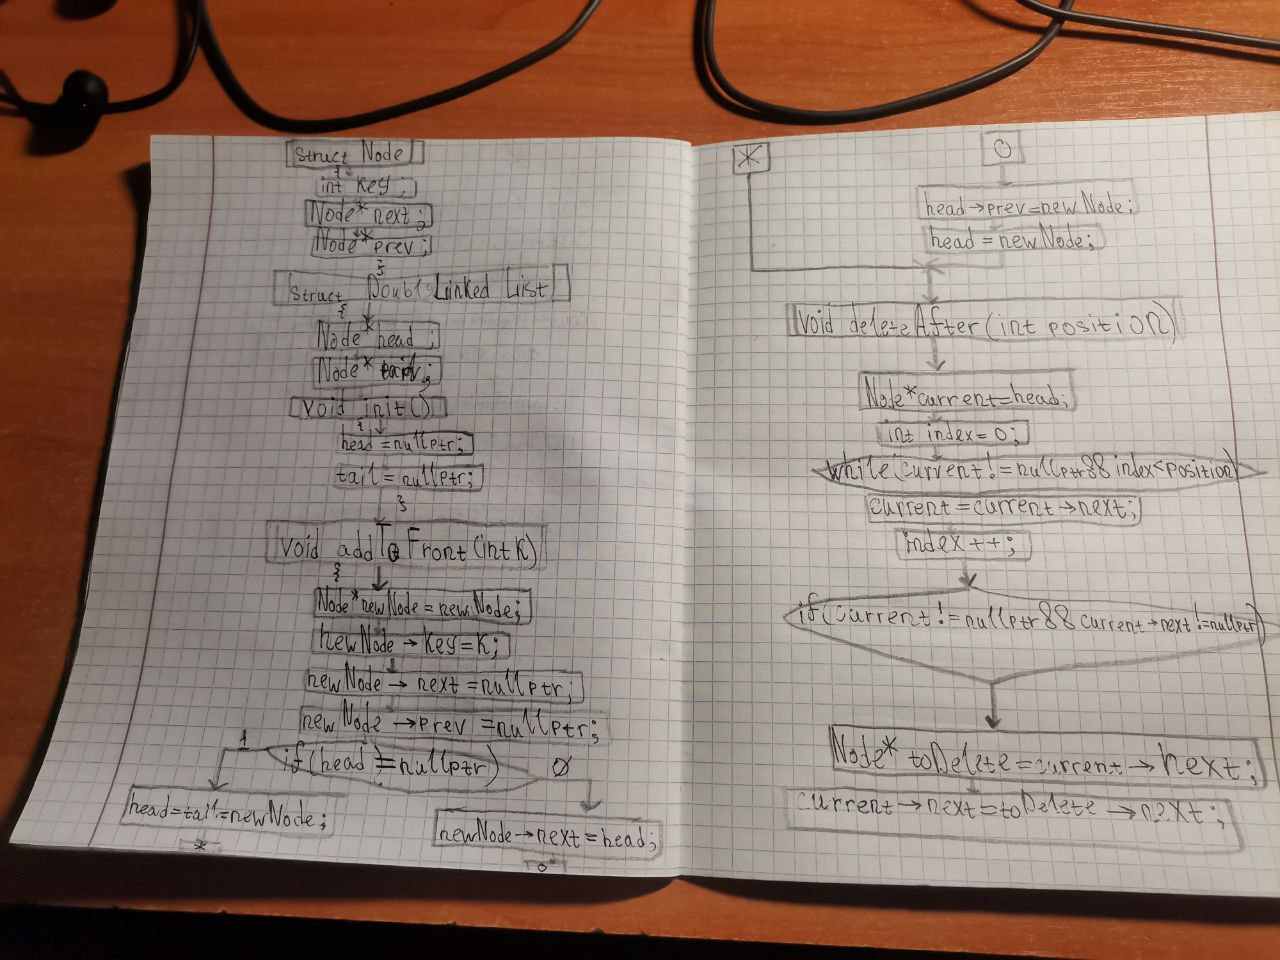 struct Node
{
int key;
Node* next;
Node* prev;
}
struct DoubleLinked List
{
Node* head;
Node* tail;
void init()
{
head = nullptr;
tail = nullptr;
}
void addToFront(int K)
{
Node* newNode = new Node;
newNode → key = K;
newNode → next = nullptr;
newNode → prev = nullptr;
1 if(head == nullptr) 0
head=tail=newNode;
newNode → next = head;
*
o
*
O
head → prev = newNode;
head = newNode;
void deleteAfter(int position)
Node* current = head;
int index = 0;
while(current != nullptr && index < position)
current = current → next;
index++;
if(current != nullptr && current → next != nullptr)
Node* toDelete = current → next;
current → next = toDelete → next;